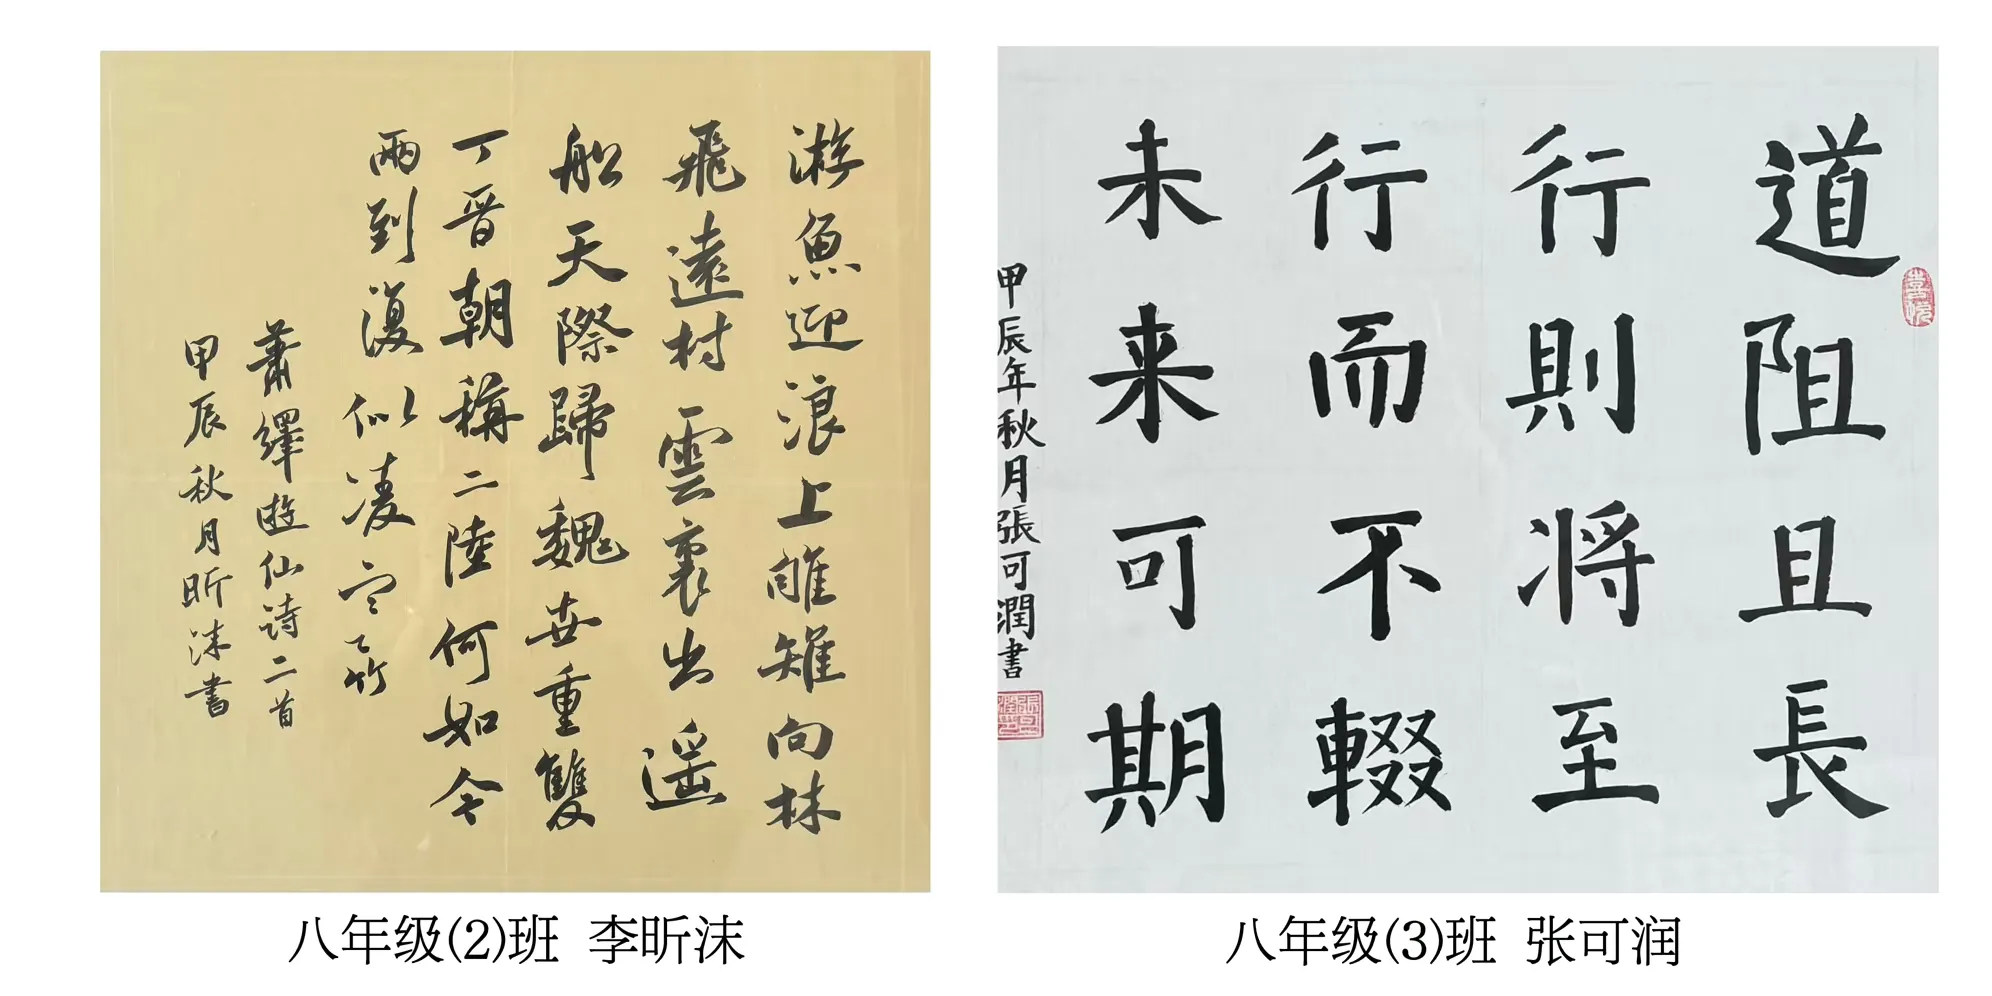 游魚迎浪上雊雉向林
飛遠村雲裏出遥
船天際歸魏世重雙
丁晋朝稱二陸何如今
兩到復似凌寒竹
蕭繹遊仙詩二首
甲辰秋月昕沫書
八年级(2)班 李昕沫
道阻且長
行則将至
行而不輟
未来可期
甲辰年秋月張可潤書
喜悦
八年级(3)班 张可润